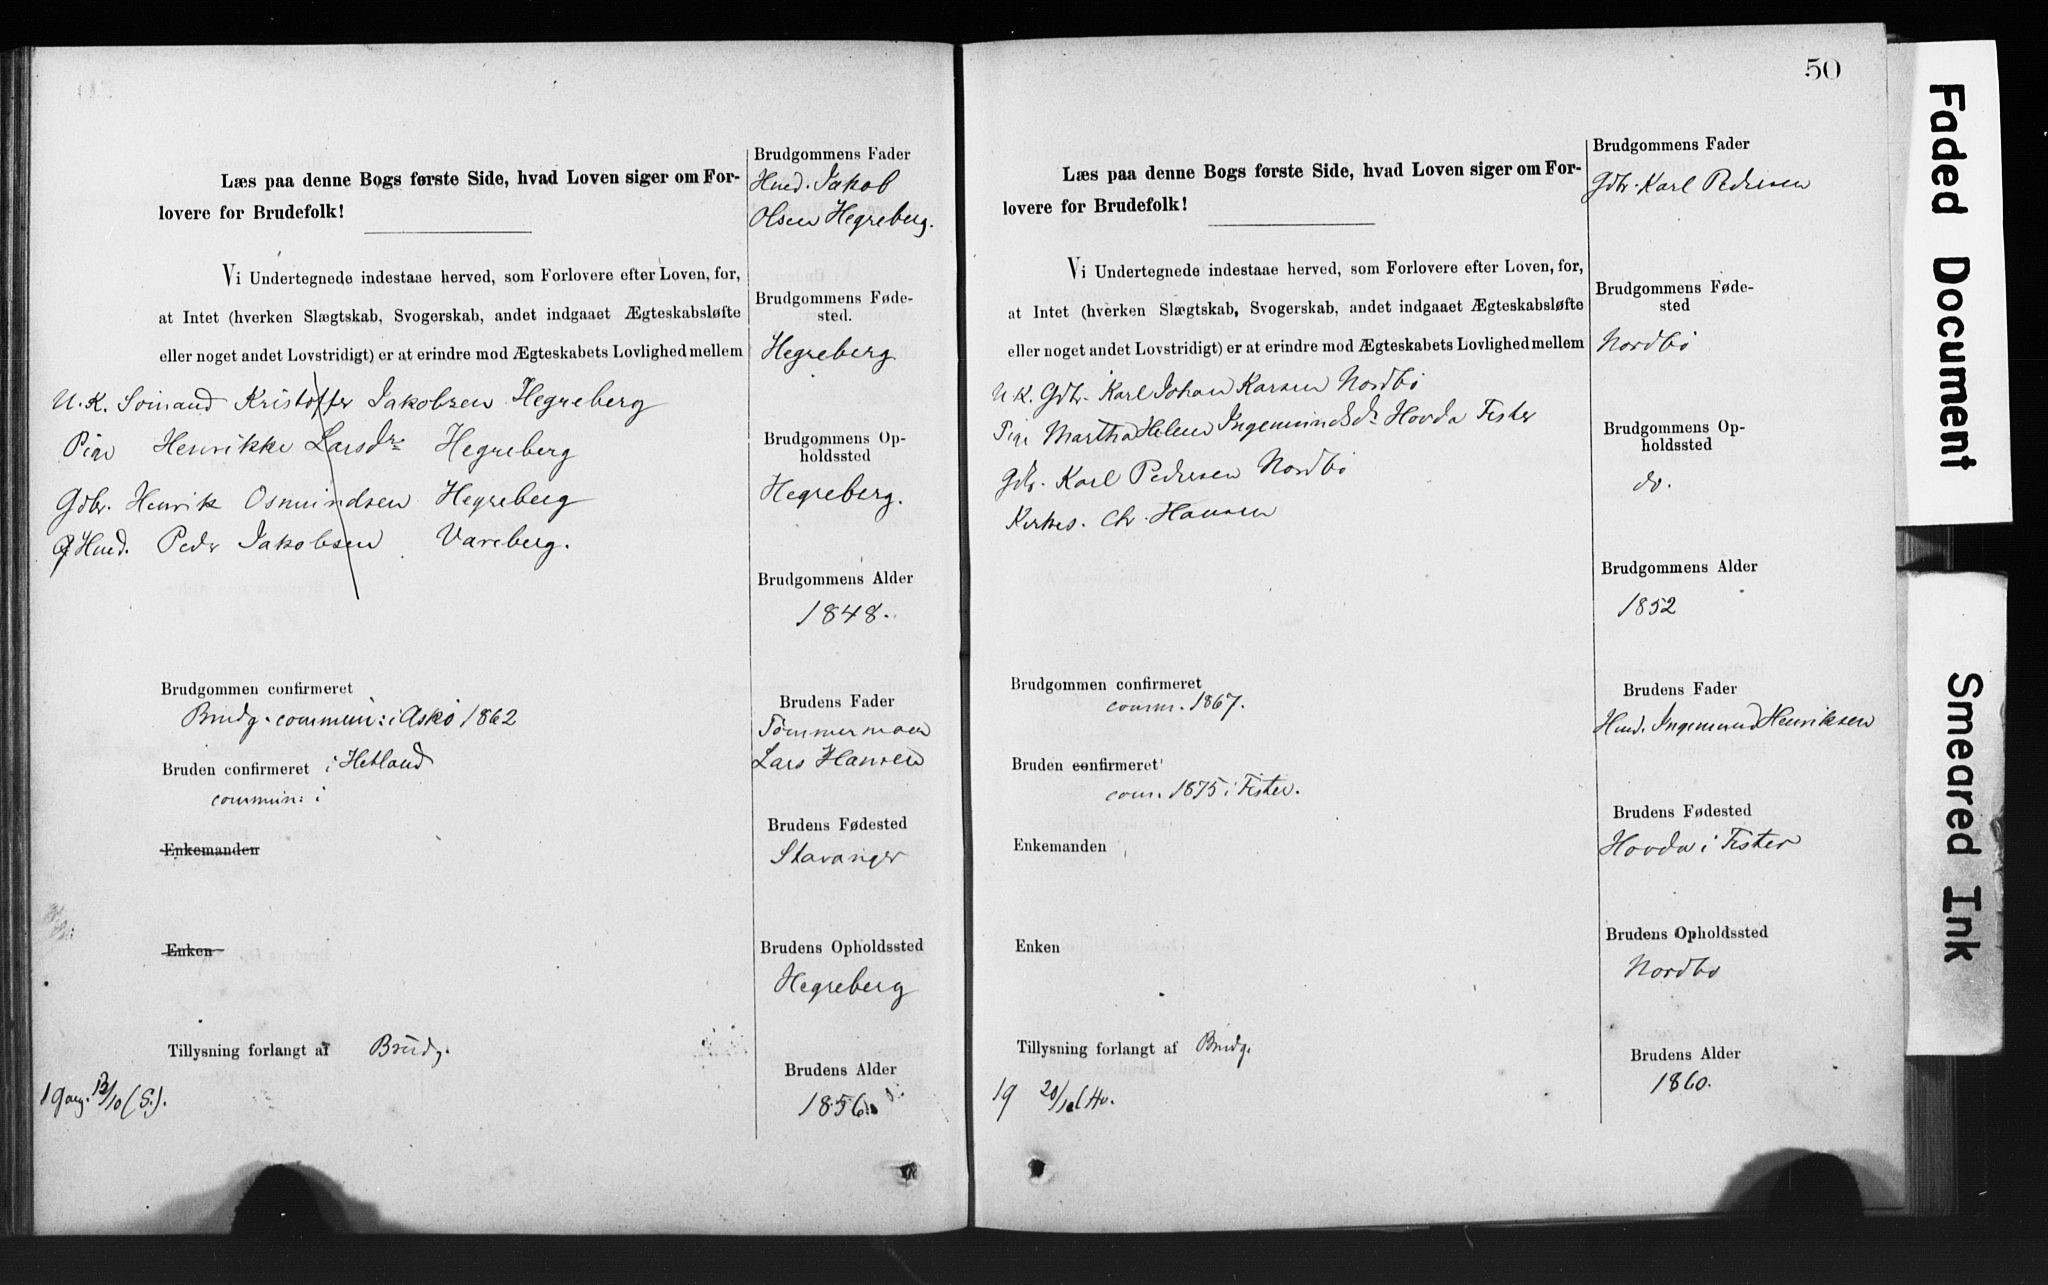 Læs paa denne Bogs første Side, hvad Loven siger om For-
lovere for Brudefolk!
Vi Undertegnede indestaae herved, som Forlovere efter Loven, for,
at Intet (hverken Slægtskab, Svogerskab, andet indgaaet Ægteskabsløfte
eller noget andet Lovstridigt) er at erindre mod Ægteskabets Lovlighed mellem
U. K. Sømand Kristoffer Jakobsen Hegreberg
Pige Henrikke Larsdr Hegreberg
Gdbr. Henrik Osmundsen Hegreberg
Hmd. Peder Jakobsen Vareberg.
Brudgommen confirmeret
Brudg. commun: i Askø 1862
Bruden confirmeret i Hetland
commun: i
Enkemanden
Enken
Tillysning forlangt af Brudg.
1 Gang. 13/10 (S.).
Brudgommens Fader
Hmd. Jakob
Olsen Hegreberg.
Brudgommens Føde-
sted.
Hegreberg
Brudgommens Op-
holdssted
Hegreberg.
Brudgommens Alder
1848.
Brudens Fader
Tømmermand
Lars Hansen
Brudens Fødested
Stavanger
Brudens Opholdssted
Hegreberg
Brudens Alder
1856
50
Læs paa denne Bogs første Side, hvad Loven siger om For-
lovere for Brudefolk!
Vi Undertegnede indestaae herved, som Forlovere efter Loven, for,
at Intet (hverken Slægtskab, Svogerskab, andet indgaaet Ægteskabsløfte
eller noget andet Lovstridigt) er at erindre mod Ægteskabets Lovlighed mellem
U. K. Gdbr. Karl Johan Karsen Nordbø
Pige Martha Helene Ingemundsdr Hovda Fister
Gdbr. Karl Pedersen Nordbø
Kirkes. Chr. Hansen
Brudgommen confirmeret
comm. 1867.
Bruden confirmeret
com. 1875 i Fister.
Enkemanden
Enken
Tillysning forlangt af Brudg.
1 G 20/10 (Hv.
Brudgommens Fader
Gdbr. Karl Pedersen
Brudgommens Føde-
sted
Nordbø
Brudgommens Op-
holdssted
do.
Brudgommens Alder
1852
Brudens Fader
Hmd. Ingemund Henriksen
Brudens Fødested
Hovda i Fister
Brudens Opholdssted
Nordbø
Brudens Alder
1860.
Faded Document
Smeared Ink